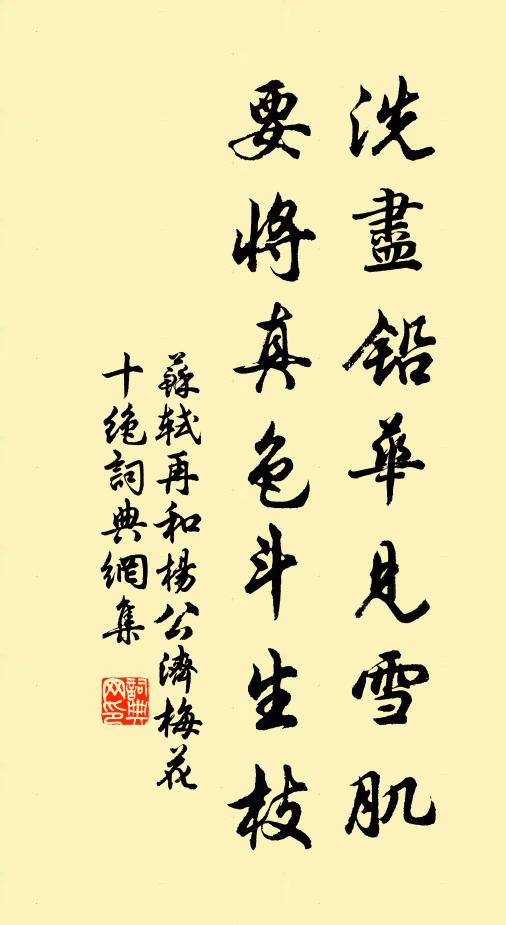 洗盡鉛華見雪肌
要將真色斗生枝
蘇軾再和楊公濟梅花
十絶詞典網集
詞典
网印